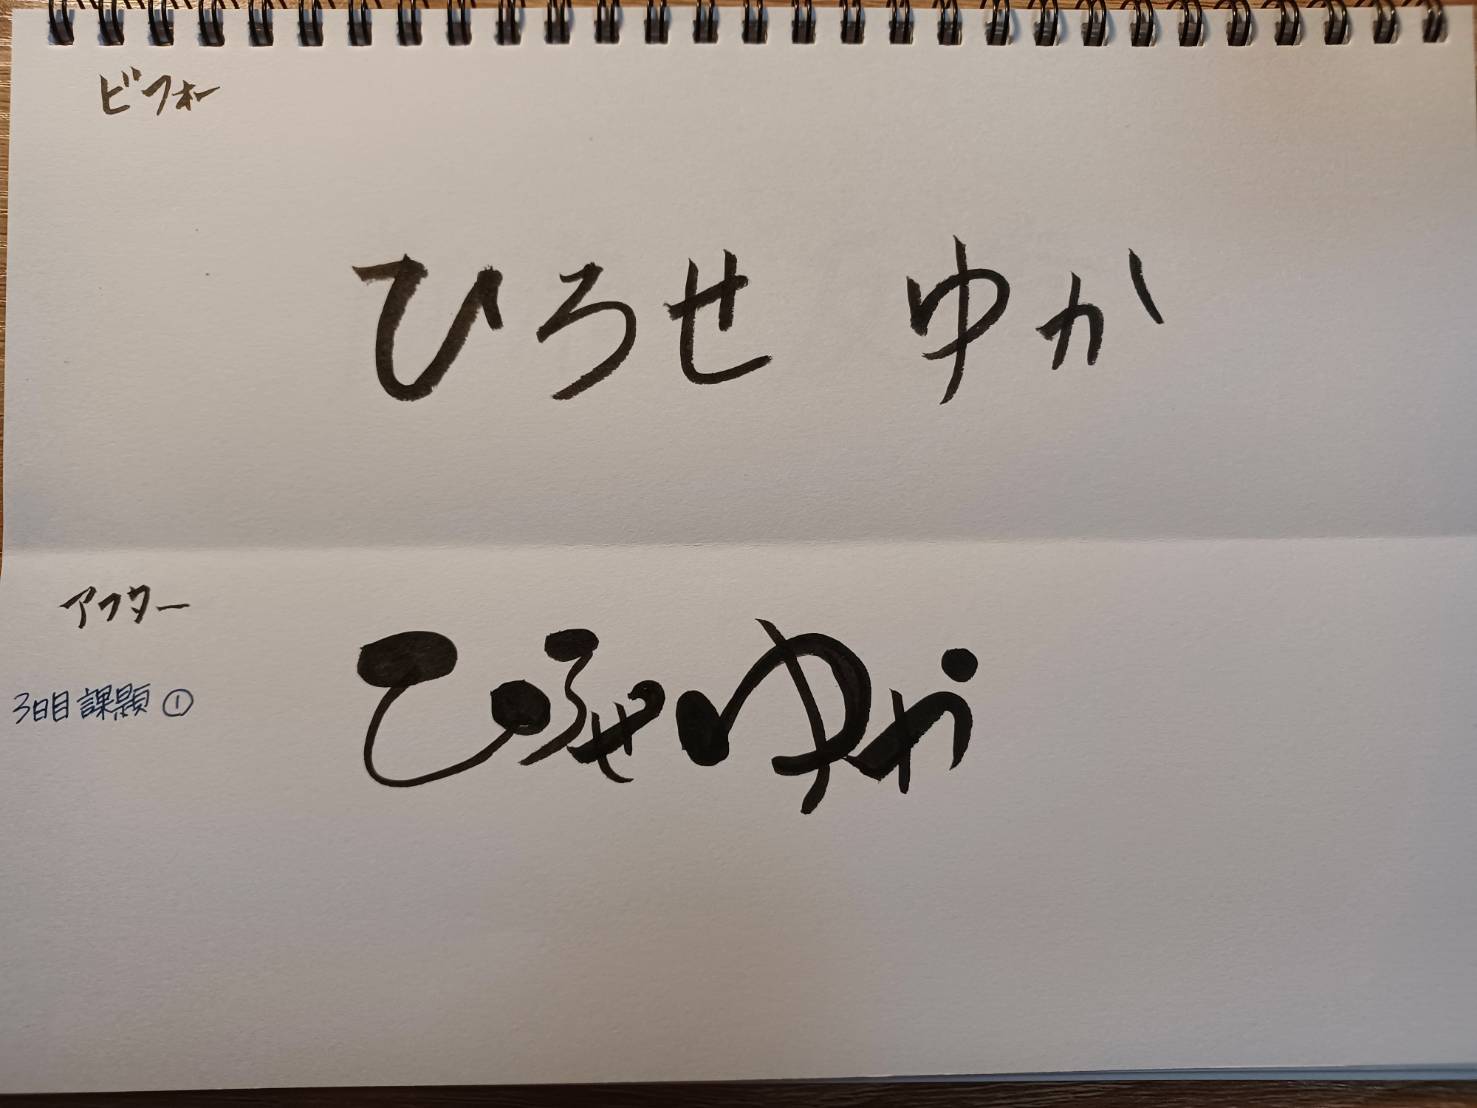 ビフォー
ひろせ ゆか
アフター
3日目課題①
ひろせゆか